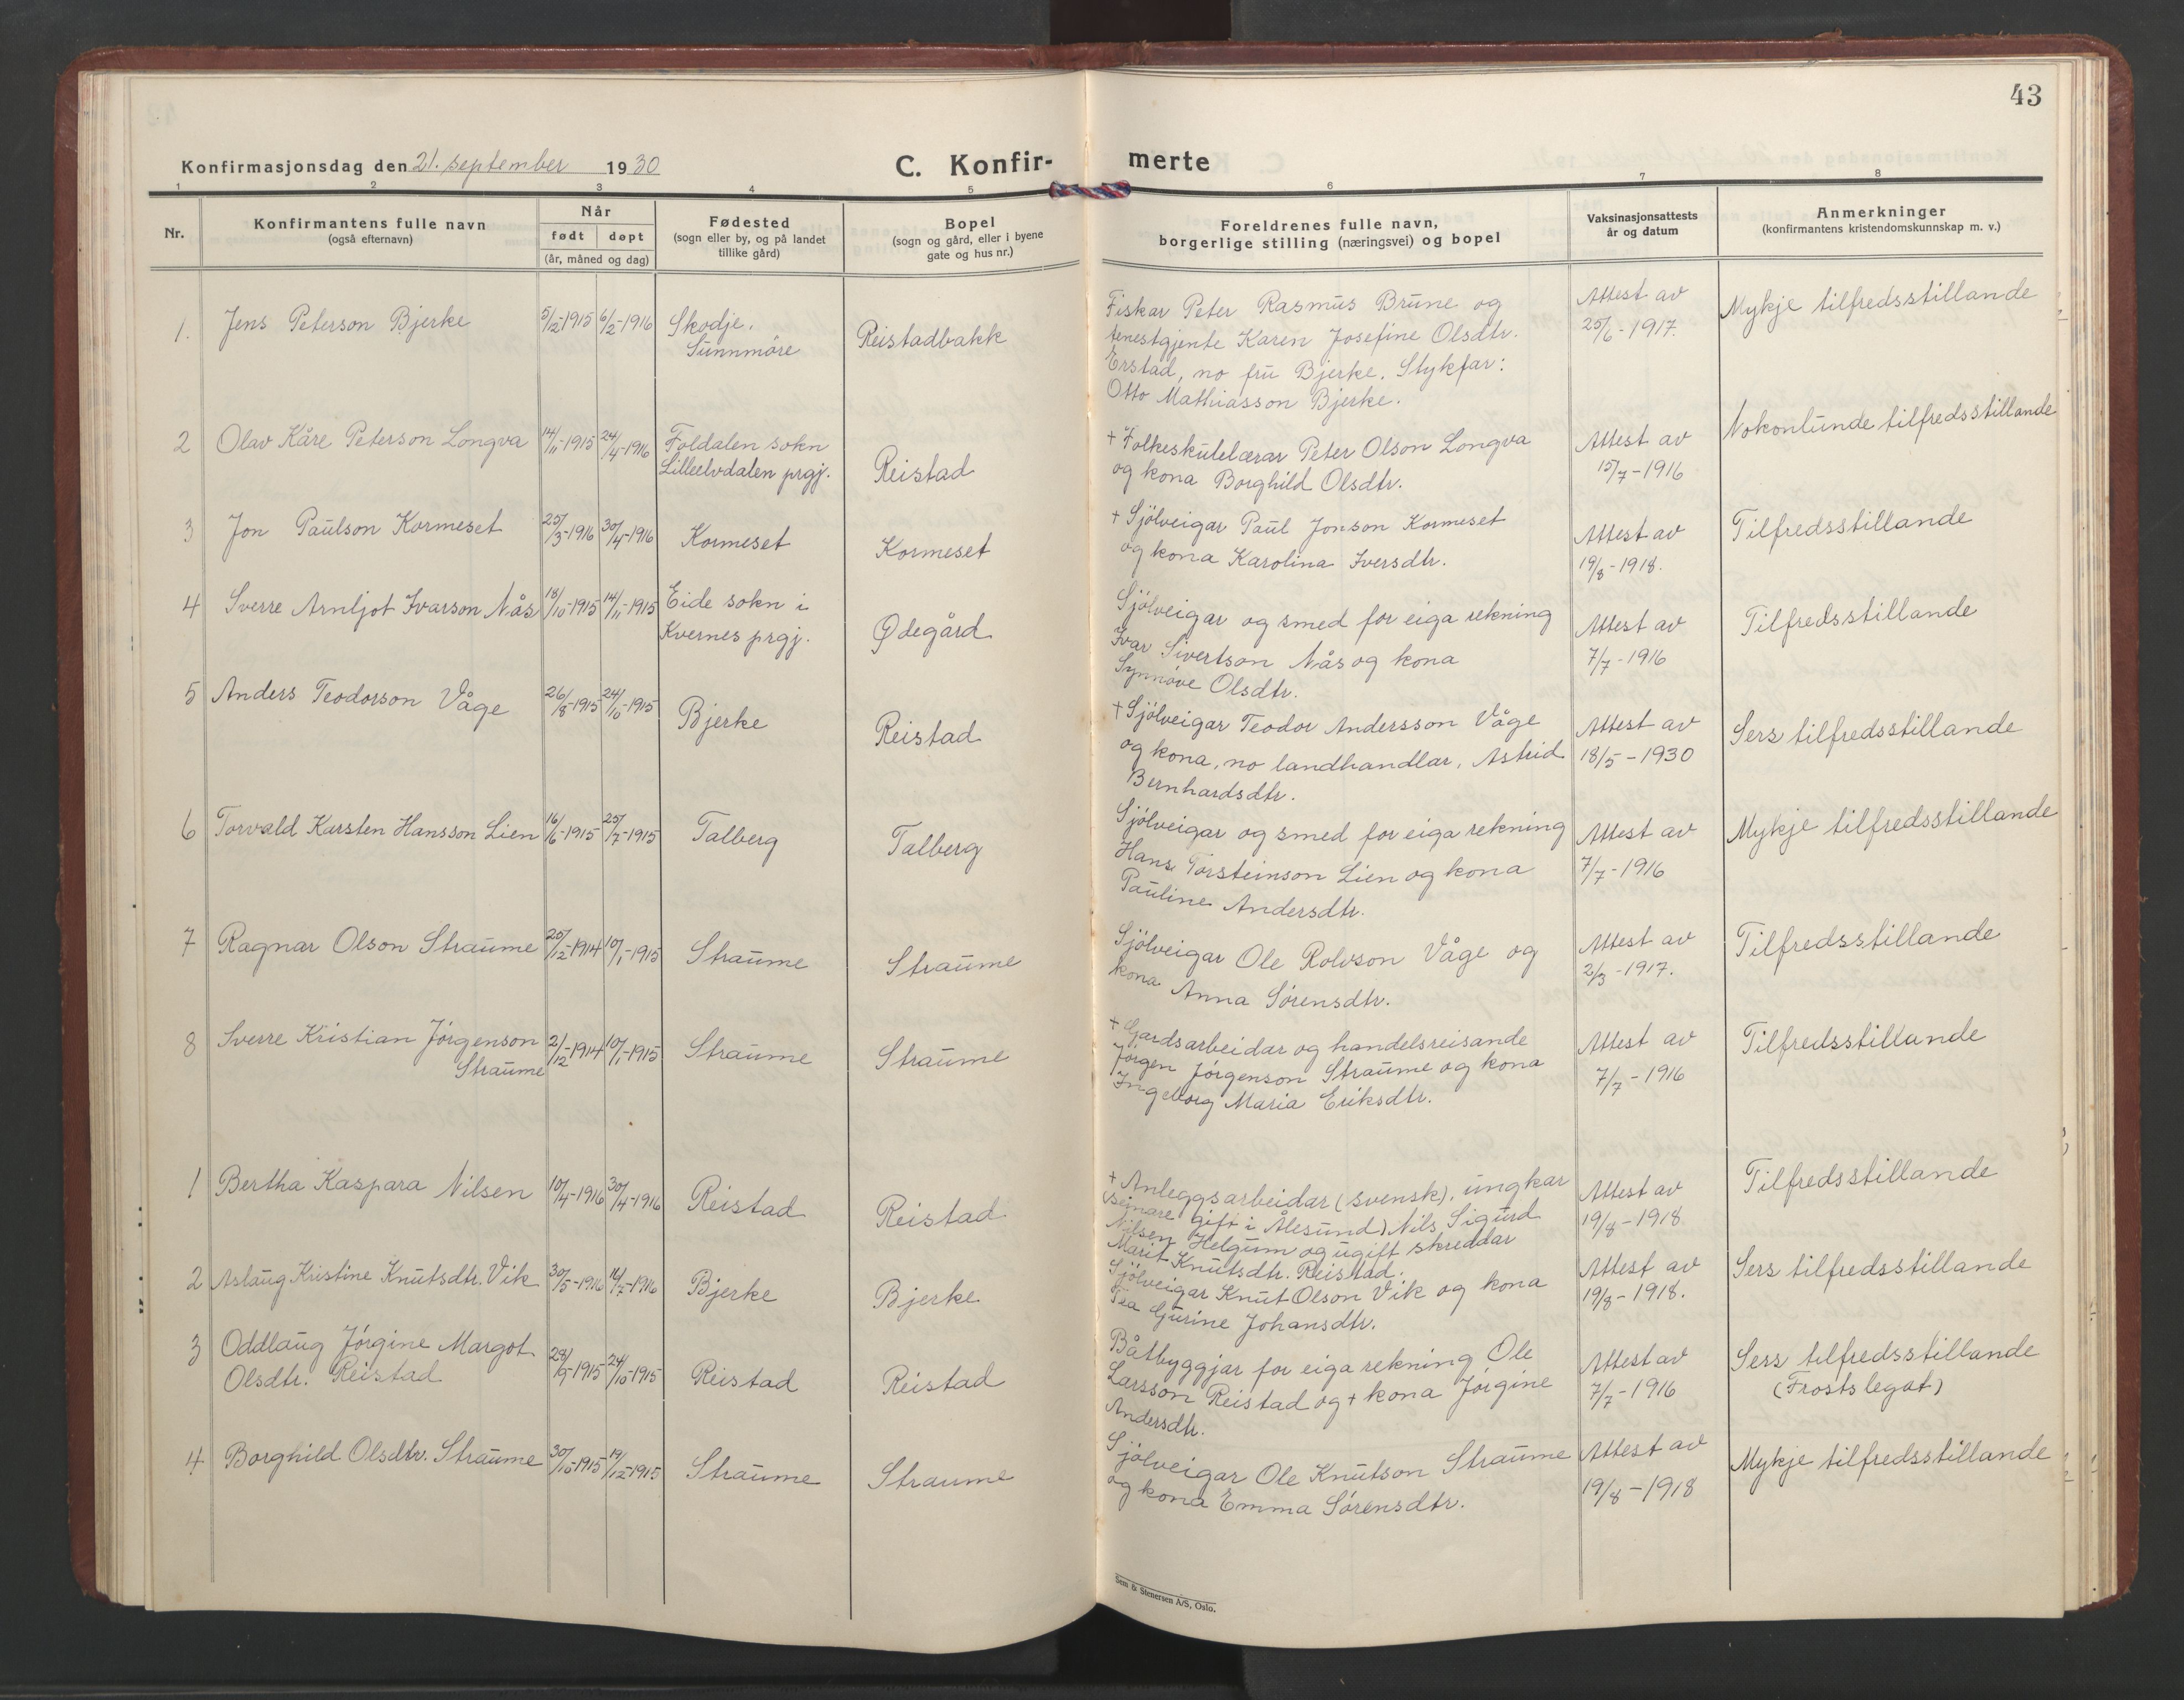 43
Konfirmasjonsdag den 21. september 1930
C. Konfir-
merte
1 2 3 4 5 6 7 8
Nr.
Konfirmantens fulle navn
(også efternavn)
Når
født døpt
(år, måned og dag)
Fødested
(sogn eller by, og på landet
tillike gård)
Bopel
(sogn og gård, eller i byene
gate og hus nr.)
Foreldrenes fulle navn,
borgerlige stilling (næringsvei) og bopel
Vaksinasjonsattests
år og datum
Anmerkninger
(konfirmantens kristendomskunnskap m. v.)
1. Jens Peterson Bjerke 5/12-1915 6/2-1916 Skodje,
Sunnmöre
Reistadbakk
Fiskar Peter Rasmus Brune og
tenestgjente Karen Josefine Olsdtr.
Erstad, no fru Bjerke. Stykfar:
Otto Mathiasson Bjerke.
Attest av
25/6-1917.
Mykje tilfredsstillande
2 Olav Kåre Peterson Longva 14/11-1915 24/4-1916 Foldalen sokn
Lilleelvdalen prgj.
Reistad
+ Folkeskulelærar Peter Olson Longva
og kona Borghild Olsdtr.
Attest av
15/7-1916
Nokonlunde tilfredsstillande
3 Jon Paulson Kormeset 25/3-1916 30/4-1916 Kormeset
Kormeset
+ Sjölveigar Paul Jonson Kormeset
og kona Karolina Iversdtr.
Attest av
19/8-1918.
Tilfredsstillande
4 Sverre Arnljot Ivarson Nås 18/10-1915 14/11-1915 Eide sokn i
Kvernes prgj.
Ødegård
Sjölveigar og smed for eiga rekning
Ivar Sivertson Nås og kona
Synnöve Olsdtr.
Attest av
7/7-1916
Tilfredsstillande
5 Anders Teodorson Våge 26/8-1915 24/10-1915 Bjerke
Reistad
+ Sjölveigar Teodor Andersson Våge
og kona, no landhandlar, Astrid
Bernhardsdtr.
Attest av
18/5-1930
Sers tilfredsstillande
6 Torvald Karsten Hansson Lien 16/6-1915 25/7-1915 Talberg
Talberg
Sjölveigar og smed for eiga rekning
Hans Torsteinson Lien og kona
Pauline Andersdtr.
Attest av
7/7-1916
Mykje tilfredsstillande
7 Ragnar Olson Straume 25/12-1914 10/1-1915 Straume
Straume
Sjölveigar Ole Rolvson Våge og
kona Anna Sörensdtr.
Attest av
2/3-1917.
Tilfredsstillande
8 Sverre Kristian Jörgenson
Straume
2/12-1914 10/1-1915 Straume
Straume
+ Gardsarbeidar og handelsreisande
Jörgen Jörgenson Straume og kona
Ingeborg Maria Eriksdtr.
Attest av
7/7-1916
Tilfredsstillande
1 Bertha Kaspara Nilsen 10/4-1916 30/4-1916 Reistad
Reistad
+ Anleggsarbeidar (svensk), ungkar
(seinare gift i Ålesund) Nils Sigurd
Nilsen Helgum og ugift skreddar
Marit Knutsdtr. Reistad.
Attest av
19/8-1918
Tilfredsstillande
2 Aslaug Kristine Knutsdtr. Vik 30/5-1916 16/7-1916 Bjerke
Bjerke
Sjölveigar Knut Olson Vik og kona
Gurine Johansdtr.
Attest av
19/8-1918.
Sers tilfredsstillande
3 Oddlaug Jörgine Margot
Olsdtr. Reistad
28/9-1915 24/10-1915 Reistad
Reistad
Båtbyggjar for eiga rekning Ole
Larsson Reistad og + kona Jörgine
Andersdtr.
Attest av
7/7-1916
Sers tilfredsstillande
(Frosts legat)
4 Borghild Olsdtr. Straume 30/10-1915 19/12-1915 Straume
Straume
Sjölveigar Ole Knutson Straume
og kona Emma Sörensdtr.
Attest av
19/8-1918
Mykje tilfredsstillande
Sem & Stenersen A/S, Oslo.